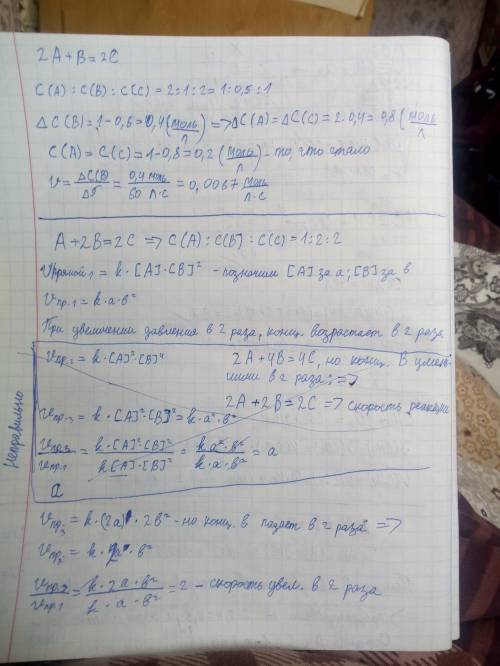 2A+B=2C
C(A) : C(B) : C(C) = 2:1:2 = 1:0,5:1
ΔC(B)=1-0,6=0,4(моль/л) => ΔC(A)=ΔC(C)=2·0,4=0,8(моль/л
C(A)=C(C)=1-0,8=0,2(моль/л) - то, что стало
v = ΔC(B)/Δτ = 0,4 моль/60 л·с = 0,0067 моль/л·с
A+2B=2C => C(A) : C(B) : C(C) = 1:2:2
Vпрямой1 = k·[A]·[B]² - обозначим [A] за a; [B] за в
Vпр.1 = k·a·в²
При увеличении давления в 2 раза, конц. возрастает в 2 раза
Vпр2 = k·[A]²·[B]⁴ 2A+4B=4C, но конц. В умень-
шили в 2 раза: =>
2A+2B=2C => скорость реакции
Vпр.3 = k·[A]²·[B]² = k·a²·в²
Vпр3/Vпр.1 = k·[A]²·[B]²/k[A]·[B]² = k a²·в²/k·a·в² = a
a
Неправильно
Vпр2 = k·(2a)·2в² - но конц. в падает в 2 раза =>
Vпр3 = k·2a·в²
Vпр2/Vпр1 = k·2a·в²/k·a·в² = 2 - скорость увел. в 2 раза